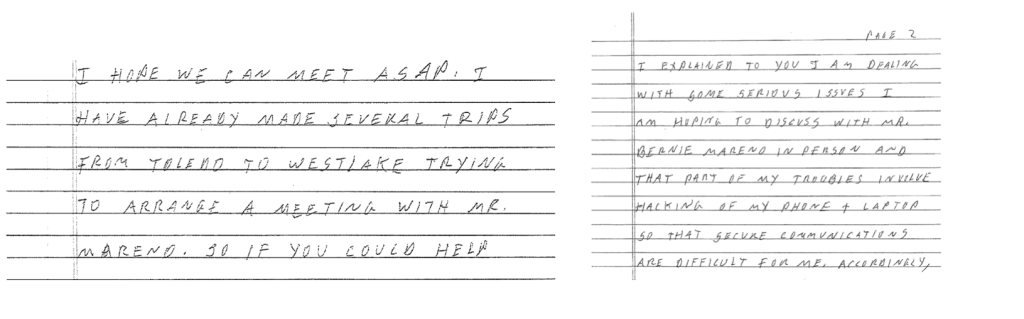 I HOPE WE CAN MEET ASAP. I
HAVE ALREADY MADE SEVERAL TRIPS
FROM TOLEDO TO WESTLAKE TRYING
TO ARRANGE A MEETING WITH MR.
MARENO. SO IF YOU COULD HELP
PAGE 2
I EXPLAINED TO YOU I AM DEALING
WITH SOME SERIOUS ISSUES I
AM HOPING TO DISCUSS WITH MR.
BERNIE MARENO IN PERSON AND
THAT PART OF MY TROUBLES INVOLVE
HACKING OF MY PHONE + LAPTOP
SO THAT SECURE COMMUNICATIONS
ARE DIFFICULT FOR ME. ACCORDINGLY,